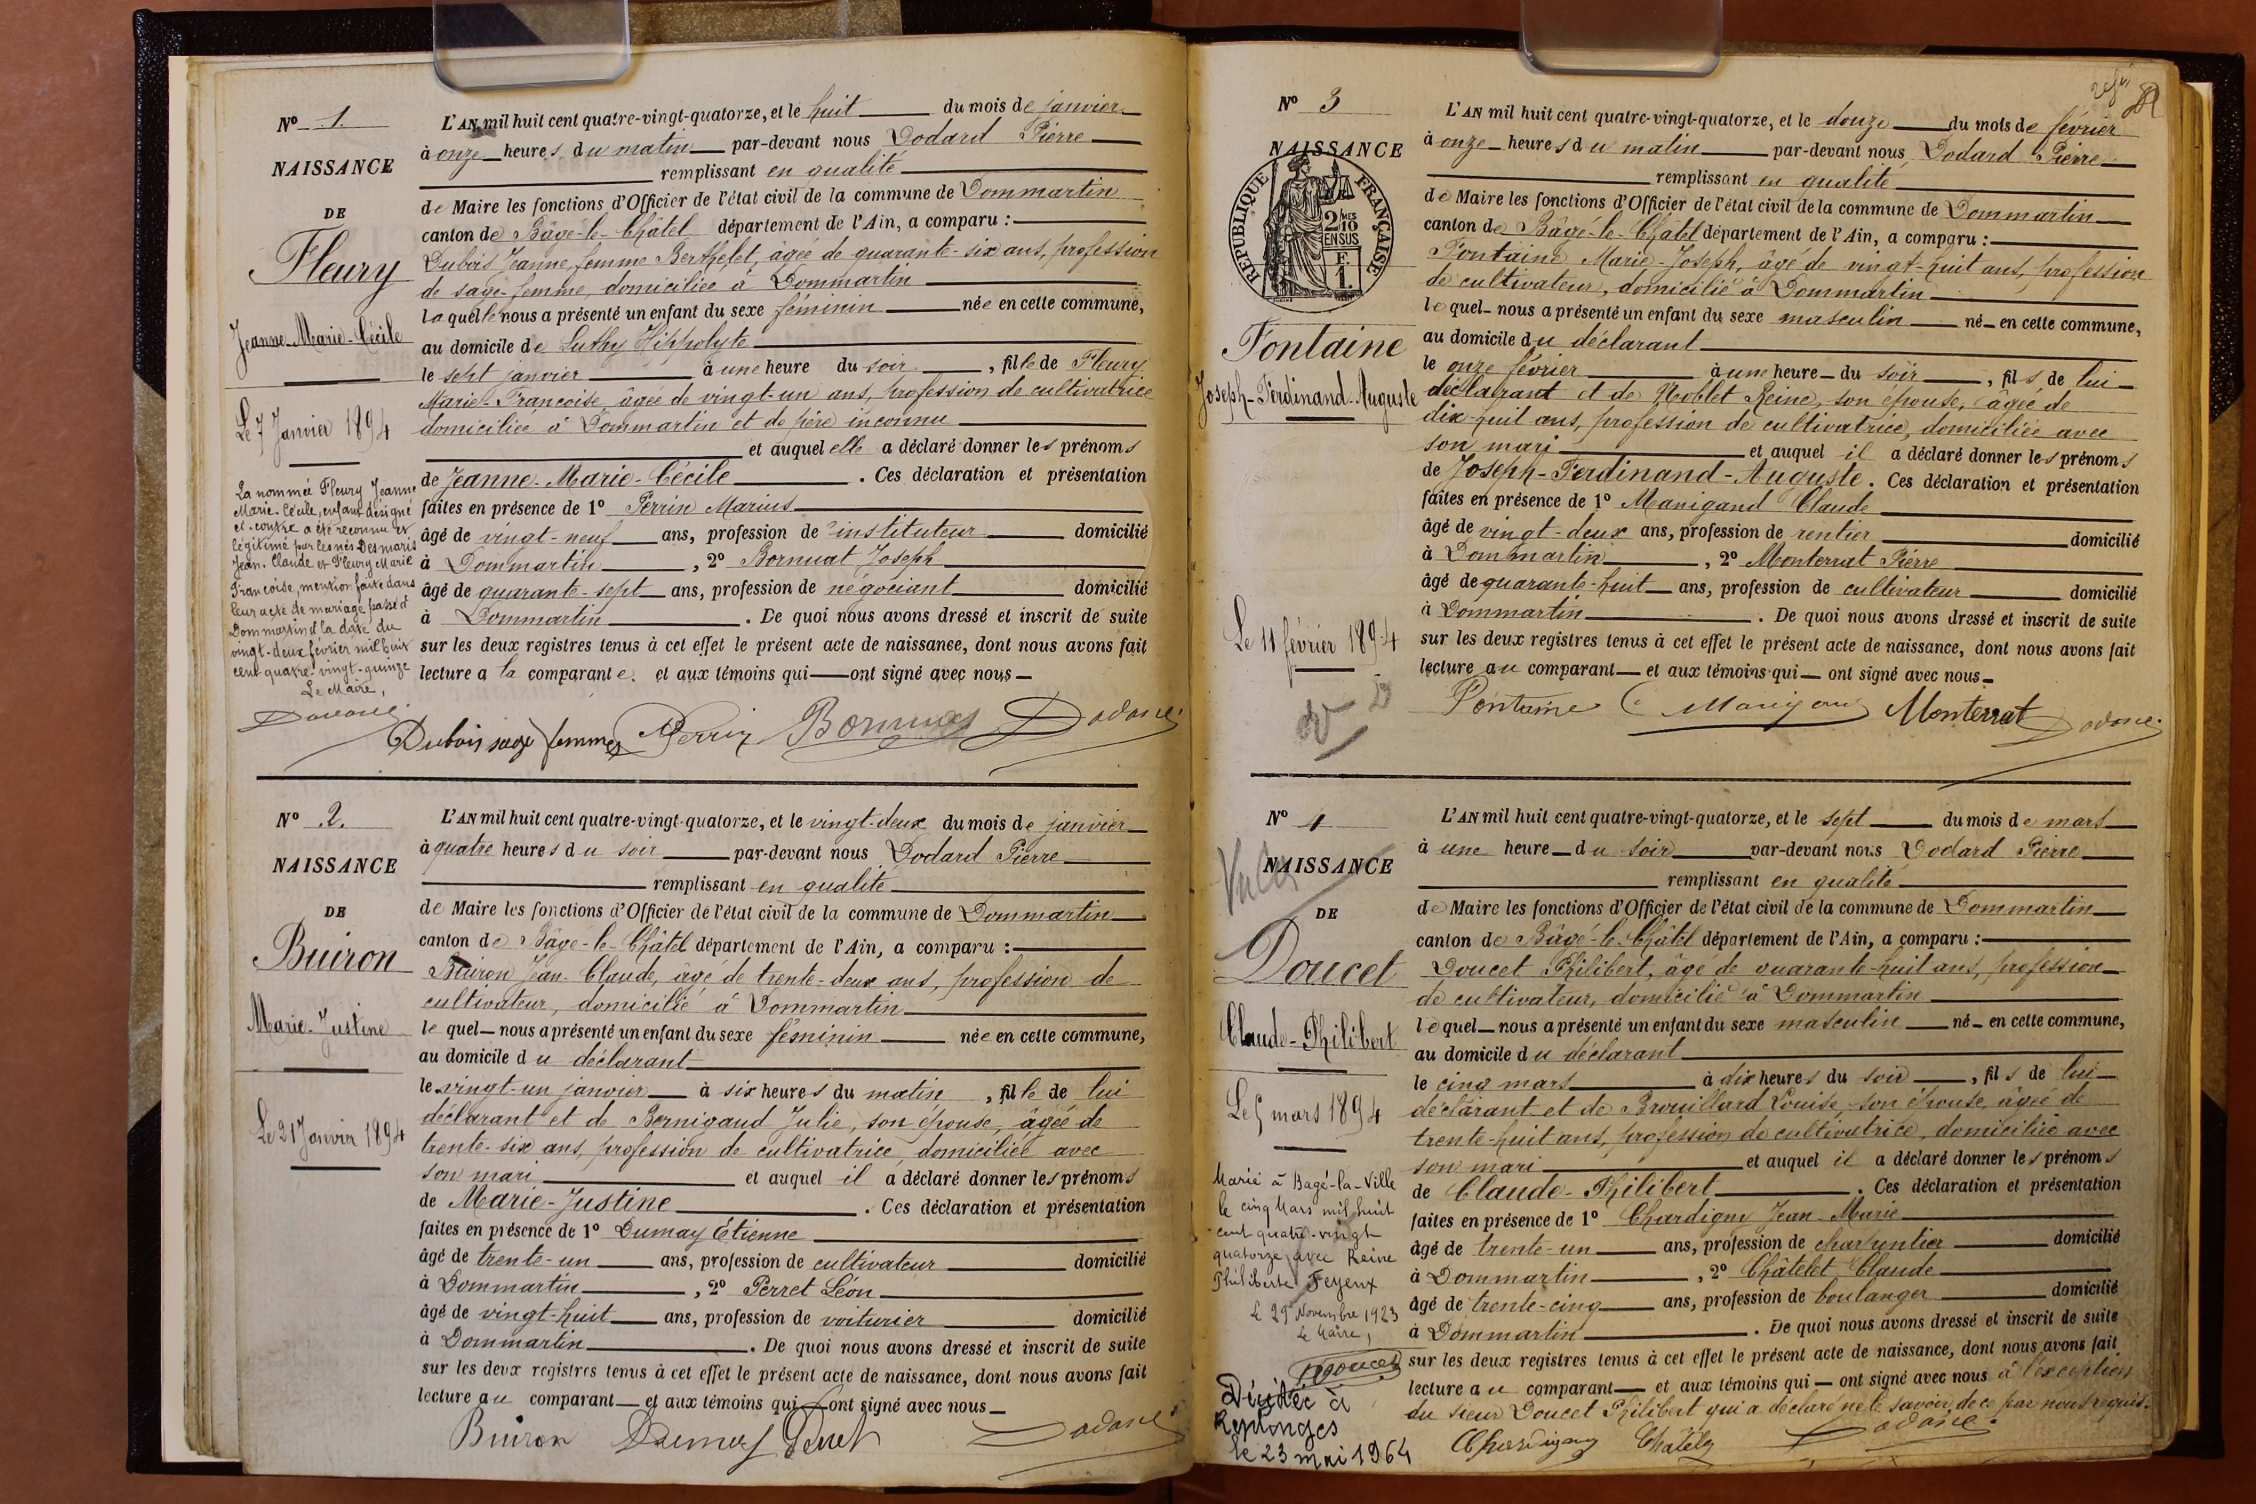 N° 1
NAISSANCE
DE
Fleury
Jeanne-Marie-Cécile
Le 7 Janvier 1894
La nommée Fleury Jeanne
Marie-Cécile, enfant désigné
ci-contre a été reconnu et
légitimé par les nés Desmaris
Jean-Claude et Fleury Marie
Françoise, mention faite dans
leur acte de mariage passé à
Dommartin à la date du
vingt-deux février mil huit
cent quatre-vingt-quinze
Le Maire,
L'AN mil huit cent quatre-vingt-quatorze, et le huit du mois de janvier
à onze heures du matin par-devant nous Dodard Pierre
remplissant en qualité
de Maire les fonctions d'Officier de l'état civil de la commune de Dommartin
canton de Bâgé-le-Châtel département de l'Ain, a comparu :
Dubois Jeanne, femme Berthelet, âgée de quarante-six ans, profession
de sage-femme, domiciliée à Dommartin
laquelle nous a présenté un enfant du sexe féminin née en cette commune,
au domicile de Luthy Hippolyte
le sept janvier à une heure du soir, fille de Fleury
Marie-Françoise, âgée de vingt-un ans, profession de cultivatrice
domiciliée à Dommartin et de père inconnu
et auquel elle a déclaré donner les prénoms
de Jeanne-Marie-Cécile. Ces déclaration et présentation
faites en présence de 1° Perrin Marius
âgé de vingt-neuf ans, profession de instituteur domicilié
à Dommartin, 2° Bornuat Joseph
âgé de quarante-sept ans, profession de négociant domicilié
à Dommartin. De quoi nous avons dressé et inscrit de suite
sur les deux registres tenus à cet effet le présent acte de naissance, dont nous avons fait
lecture a la comparante et aux témoins qui ont signé avec nous
Dubois sage femme Perrin
N° 2.
NAISSANCE
DE
Buiron
Marie-Justine
Le 21 Janvier 1894
L'AN mil huit cent quatre-vingt-quatorze, et le vingt-deux du mois de janvier
à quatre heures du soir par-devant nous Dodard Pierre
remplissant en qualité
de Maire les fonctions d'Officier de l'état civil de la commune de Dommartin
canton de Bâgé-le-Châtel département de l'Ain, a comparu :
Buiron Jean-Claude, âgé de trente-deux ans, profession de
cultivateur, domicilié à Dommartin
lequel nous a présenté un enfant du sexe féminin née en cette commune,
au domicile du déclarant
le vingt-un janvier à six heures du matin, fille de lui
déclarant et de Bernigaud Julie, son épouse, âgée de
trente-six ans, profession de cultivatrice, domiciliée avec
son mari et auquel il a déclaré donner les prénoms
de Marie-Justine. Ces déclaration et présentation
faites en présence de 1° Dumay Étienne
âgé de trente-un ans, profession de cultivateur domicilié
à Dommartin, 2° Perret Léon
âgé de vingt-huit ans, profession de voiturier domicilié
à Dommartin. De quoi nous avons dressé et inscrit de suite
sur les deux registres tenus à cet effet le présent acte de naissance, dont nous avons fait
lecture au comparant et aux témoins qui ont signé avec nous
Buiron Dumay Perret
N° 3
NAISSANCE
RÉPUBLIQUE FRANÇAISE
2/10 MES
EN SUS
F.
1.
Fontaine
Joseph-Ferdinand-Auguste
Le 11 février 1894
L'AN mil huit cent quatre-vingt-quatorze, et le douze du mois de février
à onze heures du matin par-devant nous Dodard Pierre
remplissant en qualité
de Maire les fonctions d'Officier de l'état civil de la commune de Dommartin
canton de Bâgé-le-Châtel département de l'Ain, a comparu :
Fontaine Marie-Joseph, âgé de vingt-huit ans, profession
de cultivateur, domicilié à Dommartin
lequel nous a présenté un enfant du sexe masculin né en cette commune,
au domicile du déclarant
le onze février à une heure du soir, fils de lui
déclarant et de Noblet Reine, son épouse, âgée de
dix-huit ans, profession de cultivatrice, domiciliée avec
son mari et auquel il a déclaré donner les prénoms
de Joseph-Ferdinand-Auguste. Ces déclaration et présentation
faites en présence de 1° Manigand Claude
âgé de vingt-deux ans, profession de rentier domicilié
à Dommartin, 2° Monterrat Pierre
âgé de quarante-huit ans, profession de cultivateur domicilié
à Dommartin. De quoi nous avons dressé et inscrit de suite
sur les deux registres tenus à cet effet le présent acte de naissance, dont nous avons fait
lecture au comparant et aux témoins qui ont signé avec nous
Fontaine C Manigand Monterrat
N° 4
NAISSANCE
DE
Doucet
Claude-Philibert
Le 5 mars 1894
Marié à Bagé-la-Ville
le cinq Mars mil huit
cent quatre-vingt
quatorze avec Reine
Philiberte Feyeux
Le 29 Novembre 1923
Le Maire,
Doucet
Décédé à
Replonges
le 23 mai 1964
L'AN mil huit cent quatre-vingt-quatorze, et le sept du mois de mars
à une heure du soir par-devant nous Dodard Pierre
remplissant en qualité
de Maire les fonctions d'Officier de l'état civil de la commune de Dommartin
canton de Bâgé-le-Châtel département de l'Ain, a comparu :
Doucet Philibert, âgé de quarante-huit ans, profession
de cultivateur, domicilié à Dommartin
lequel nous a présenté un enfant du sexe masculin né en cette commune,
au domicile du déclarant
le cinq mars à dix heures du soir, fils de lui
déclarant et de Brouillard Louise, son épouse, âgée de
trente-huit ans, profession de cultivatrice, domiciliée avec
son mari et auquel il a déclaré donner les prénoms
de Claude-Philibert. Ces déclaration et présentation
faites en présence de 1° Chardigny Jean-Marie
âgé de trente-un ans, profession de charpentier domicilié
à Dommartin, 2° Châtelet Claude
âgé de trente-cinq ans, profession de boulanger domicilié
à Dommartin. De quoi nous avons dressé et inscrit de suite
sur les deux registres tenus à cet effet le présent acte de naissance, dont nous avons fait
lecture au comparant et aux témoins qui ont signé avec nous à l'exception
du sieur Doucet Philibert qui a déclaré ne le savoir, de ce par nous requis.
Chardigny